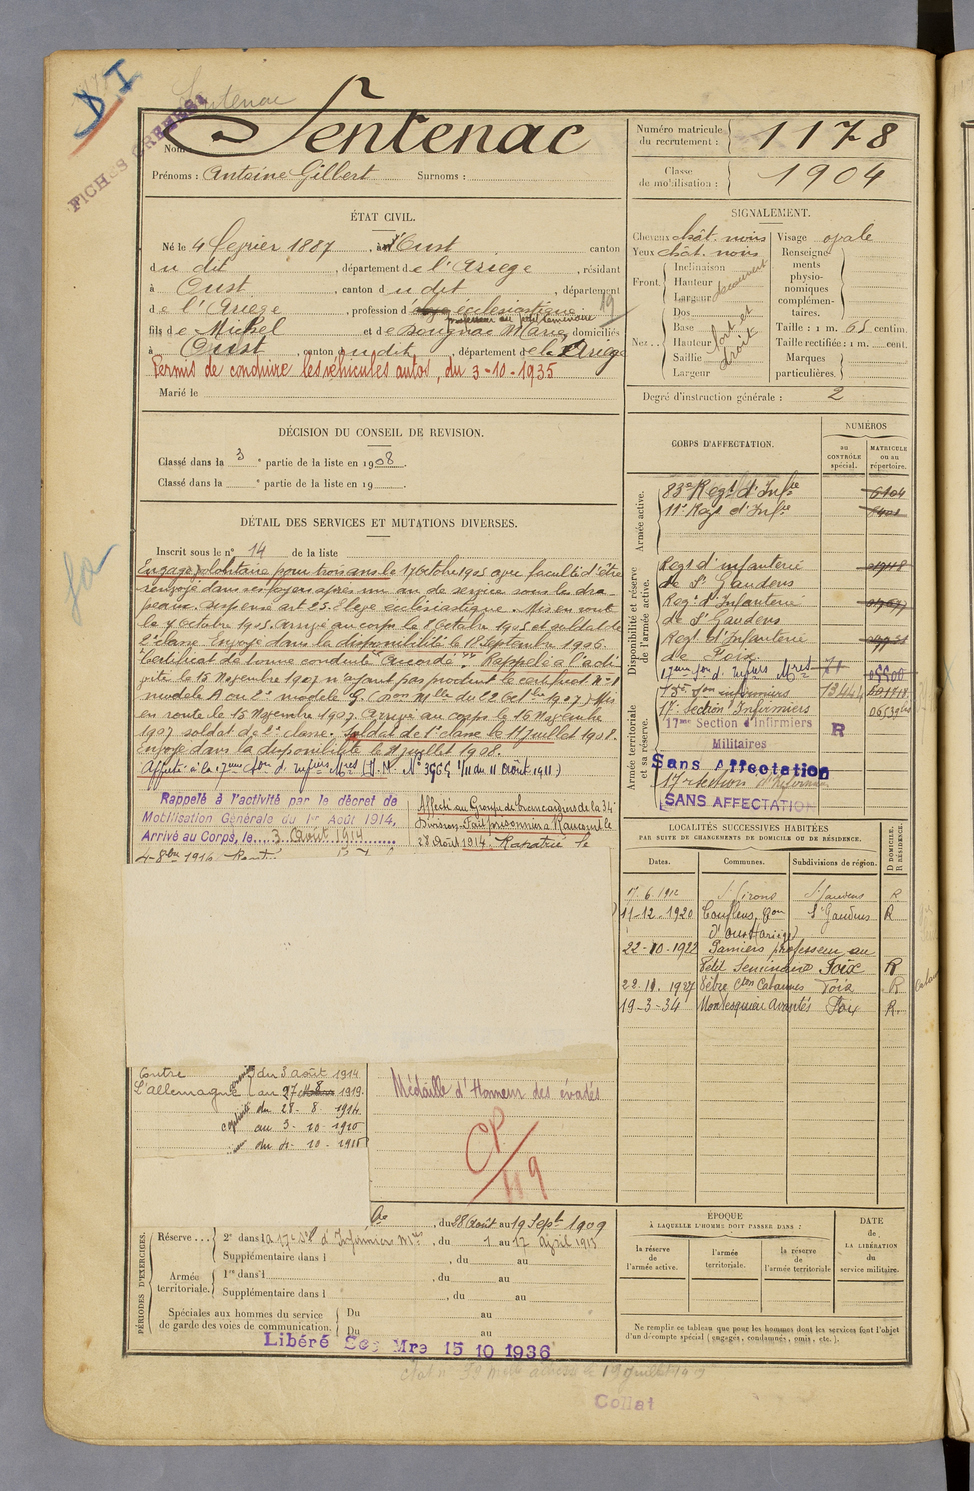 Sentenac
FICHES
Nom : Sentenac
Prénoms : Antoine Gilbert Surnoms :
Numéro matricule du recrutement : 1178
Classe de mobilisation : 1904
ÉTAT CIVIL.
Né le 4 février 1887, à Oust canton
du dit, département de l'Ariège, résidant
à Oust, canton du dit, département
de l'Ariège, profession d' ecclésiastique
professeur au petit séminaire 19
fils de Michel et de Sougnac Marie domiciliés
à Oust, canton du dit, département de l'Ariège
Permis de conduire les véhicules autos, du 3-10-1935
Marié le
SIGNALEMENT.
Cheveux chât. noirs
Yeux chât. noirs
Front. Inclinaison Hauteur Largeur
Nez Dos Base Hauteur Saillie Largeur
Visage ovale
Renseignements physionomiques complémentaires.
Taille : 1 m. 65 centim.
Taille rectifiée : 1 m. cent.
Marques particulières.
Degré d'instruction générale : 2
DÉCISION DU CONSEIL DE REVISION.
Classé dans la 3e partie de la liste en 1908.
Classé dans la e partie de la liste en 19
DÉTAIL DES SERVICES ET MUTATIONS DIVERSES.
Inscrit sous le n° 14 de la liste
Engagé volontaire pour trois ans le 7 Octobre 1905 avec faculté d'être
renvoyé dans ses foyers après un an de service sous les dra-
peaux. Dispensé art 23. Elève ecclésiastique. Mis en route
le 7 Octobre 1905. Arrivé au corps le 8 Octobre 1905 et soldat de
2e classe. Envoyé dans la disponibilité le 18 Septembre 1906.
Certificat de bonne conduite "Accordé". Rappelé à l'acti-
vité le 15 Novembre 1907 n'ayant pas produit le certificat N° 1
modèle A ou 2e modèle G (Con Mlle du 22 Octbre 1907) Mis
en route le 15 Novembre 1907. Arrivé au corps le 16 Novembre
1907 soldat de 2e classe. Soldat de 1e classe le 11 Juillet 1908.
Envoyé dans la disponibilité le 11 juillet 1908.
Affecté à la 17ème Son d. Infirs Mres
Rappelé à l'activité par le décret de
Mobilisation Générale du 1er Août 1914,
Arrivé au Corps, le 3 Août 1914
Affecté au Groupe de brancardiers de la 34e
Division. Fait prisonnier à Raucourt le
28 Août 1914. Rapatrié le
CORPS D'AFFECTATION.
NUMÉROS
au CONTRÔLE spécial.
MATRICULE ou au répertoire.
Armée active.
83e Regt d'Infie
11e Regt d'Infie
Disponibilité et réserve de l'armée active.
Regt d'infanterie
de St Gaudens
Regt d'Infanterie
de St Gaudens
Regt d'Infanterie
de Foix
17ème Son d. Infirs Mres
Armée territoriale et sa réserve.
17e Section Infirmiers
17me Section d'Infirmiers
Militaires
R
Sans Affectation
SANS AFFECTATION
LOCALITÉS SUCCESSIVES HABITÉES
PAR SUITE DE CHANGEMENTS DE DOMICILE OU DE RÉSIDENCE.
Dates. Communes. Subdivisions de région. D DOMICILE. R RÉSIDENCE
17.6.1912 St Girons St Gaudens R
11-12-1920 Couflens, Con St Gaudens R
d'Oust (Ariège)
22-10-1922 Pamiers professeur au
Petit Seminaire Foix R
22.11.1927 Vèbre Cton Cabannes Foix R
19-3-34 Montesquieu Avantès Foix R
Contre
L'allemagne
du 3 août 1914
au 27 8 1919.
captivité du 28-8-1914
au 3-10-1915
du 4-10-1915
Médaille d'Honneur des évadés
CP
119
PÉRIODES D'EXERCICES.
du 28 Août au 19 Septb 1909
Réserve 2e dans la 17e Son d'Infirmiers Mres, du 1 au 17 Avril 1913
Supplémentaire dans l , du au
Armée territoriale. 1re dans l , du au
Supplémentaire dans l , du au
Spéciales aux hommes du service de garde des voies de communication. Du au
Du au
Libéré Ser Mre 15 10 1936
ÉPOQUE
À LAQUELLE L'HOMME DOIT PASSER DANS :
la réserve de l'armée active.
l'armée territoriale.
la réserve de l'armée territoriale
DATE de LA LIBÉRATION du service militaire.
Ne remplir ce tableau que pour les hommes dont les services font l'objet
d'un décompte spécial (engagés, condamnés, omis, etc.).
Collat